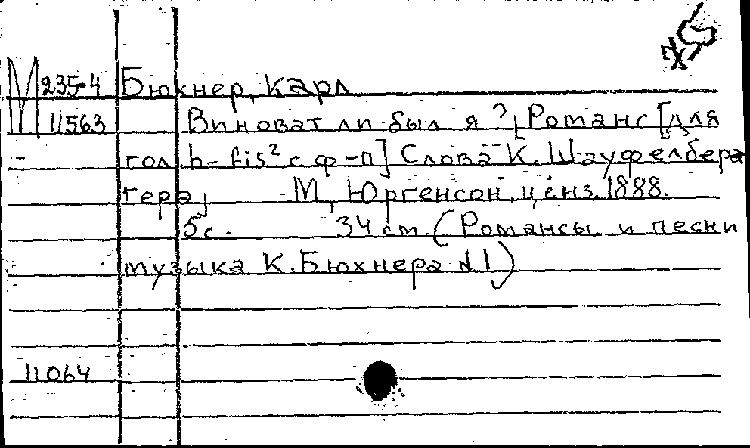 М 235-4 Бюхнер, Карл
11563 Виноват ли был я? [Романс [для
гол. h-fis² с ф-п] Слова К. Шауфелберг
гера,
М., Юргенсон, ценз. 1888.
5 с. 34 см. (Романсы и песни
музыка К. Бюхнера №1)
11064